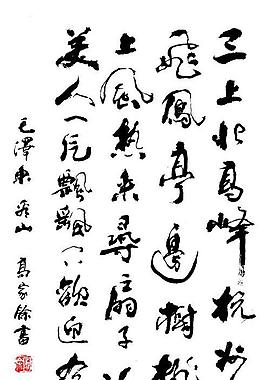 三上北高峰杭州
飛鳳亭邊樹
上風熱来尋扇子
美人一片飄飄下歡迎
毛澤東看山 高家餘書